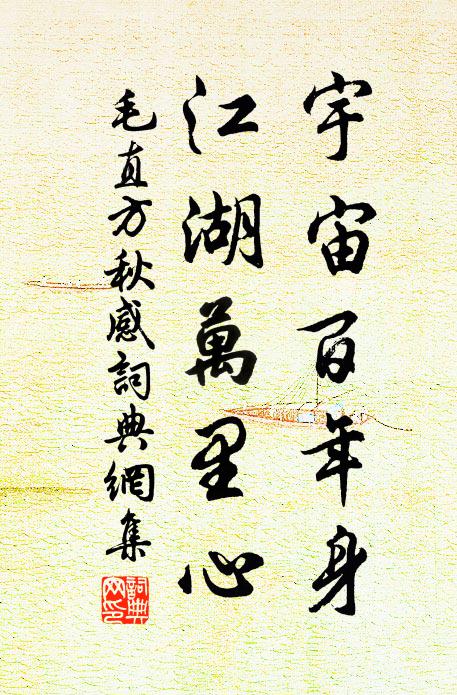 宇宙百年身
江湖萬里心
毛直方秋感詞典網集
詞典網印